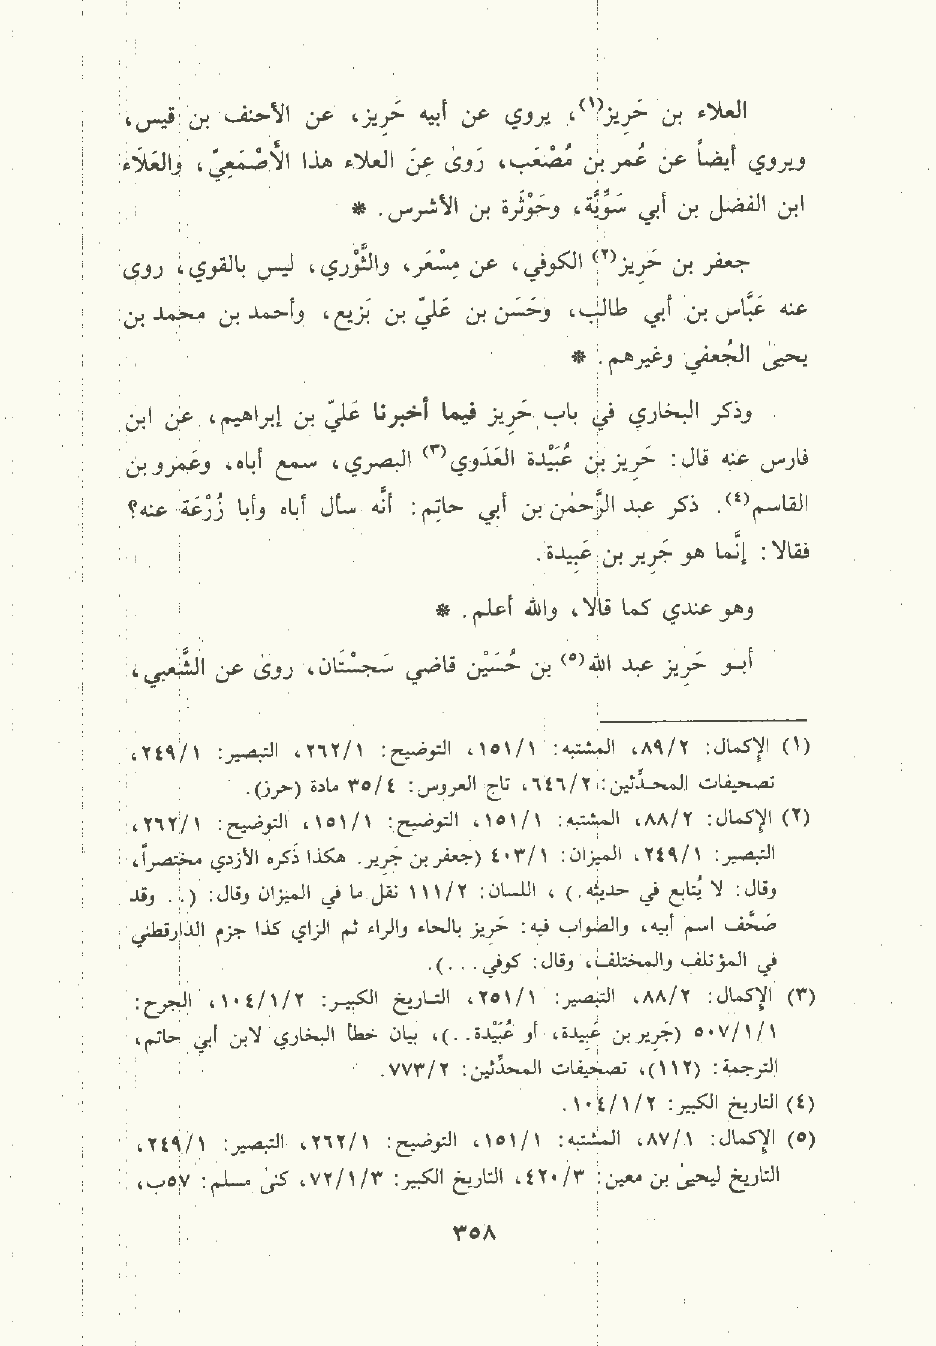 العلاء بن حَرِيز(١)، يروي عن أبيه حَرِيز، عن الأحنف بن قيس،
ويروي أيضاً عن عُمر بن مُصْعَب، رَوىٰ عَنِ العلاء هذا الأَصْمَعِيّ، والعَلَاء
ابن الفضل بن أبي سَوِّيَّة، وحَوْثَرة بن الأشرس. *
جعفر بن حَرِيز(٢) الكوفي، عن مِسْعَر، والثَّوْري، ليس بالقوي، روى
عنه عَبَّاس بن أبي طالب، وحَسَن بن عَليّ بن بَزيع، وأحمد بن محمد بن
يحيىٰ الجُعفي وغيرهم. *
وذكر البخاري في باب حَرِيز فيما أخبرنا عَليّ بن إبراهيم، عن ابن
فارس عنه قال: حَرِيز بن عُبَيْدة العَدَوي(٣) البصري، سمع أباه، وعَمرو بن
القاسم(٤). ذكر عبد الرَّحمٰن بن أبي حاتِم: أنَّه سأل أباه وأبا زُرْعَة عنه؟
فقالا: إنَّما هو جَرِير بن عَبِيدة.
وهو عندي كما قالا، والله أعلم. *
أبـو حَرِيز عبد الله(٥) بن حُسَيْن قاضي سَجسْتَان، روىٰ عن الشَّعبي،
(١) الإِكمال: ٨٩/٢، المشتبه: ١٥١/١، التوضيح: ٢٦٢/١، التبصير: ٢٤٩/١،
تصحيفات المحـدِّثين: ٦٤٦/٢، تاج العروس: ٣٥/٤ مادة (حرز).
(٢) الإِكمال: ٨٨/٢، المشتبه: ١٥١/١، التوضيح: ١٥١/١، التوضيح: ٢٦٢/١،
التبصير: ٢٤٩/١، الميزان: ٤٠٣/١ (جعفر بن جَرير. هكذا ذكره الأزدي مختصراً،
وقال: لا يُتابع في حديثه.) ، اللسان: ١١١/٢ نقل ما في الميزان وقال: (.. وقد
صَحَّف اسم أبيه، والصواب فيه: حَرِيز بالحاء والراء ثم الزاي كذا جزم الدارقطني
في المؤتلف والمختلف، وقال: كوفي...).
(٣) الإِكمال: ٨٨/٢، التبصير: ٢٥١/١، التـاريخ الكبيـر: ١٠٤/١/٢، الجرح:
٥٠٧/١/١ (جَرِير بن عَبيدة، أو عُبَيْدة..)، بيان خطأ البخاري لابن أبي حاتم،
الترجمة: (١١٢)، تصحيفات المحدِّثين: ٧٧٣/٢.
(٤) التاريخ الكبير: ١٠٤/١/٢.
(٥) الإِكمال: ٨٧/١، المشتبه: ١٥١/١، التوضيح: ٢٦٢/١، التبصير: ٢٤٩/١،
التاريخ ليحيىٰ بن معين: ٤٢٠/٣، التاريخ الكبير: ٧٢/١/٣، كنىٰ مسلم: ٥٧ب،
٣٥٨